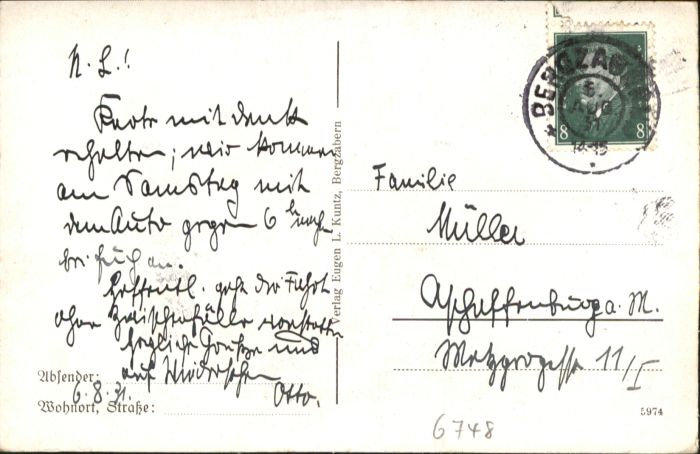 N. L.!
Karte mit Dank
erhalten; wir kommen
am Samstag mit
dem Auto gegen 6 h nachm
bei Euch an.
Hoffentl. geht die Fahrt
ohne Zwischenfälle vonstatten
Herzliche Grüße und
auf Wiedersehen
Otto.
Absender:
6.8.31.
Wohnort, Straße:
Verlag Eugen L. Kuntz, Bergzabern
BERGZABERN
6.
AUG
31
14-15
8 8
Familie
Müller
Aschaffenburg a. M.
Metzgergasse 11/I
5974
6748